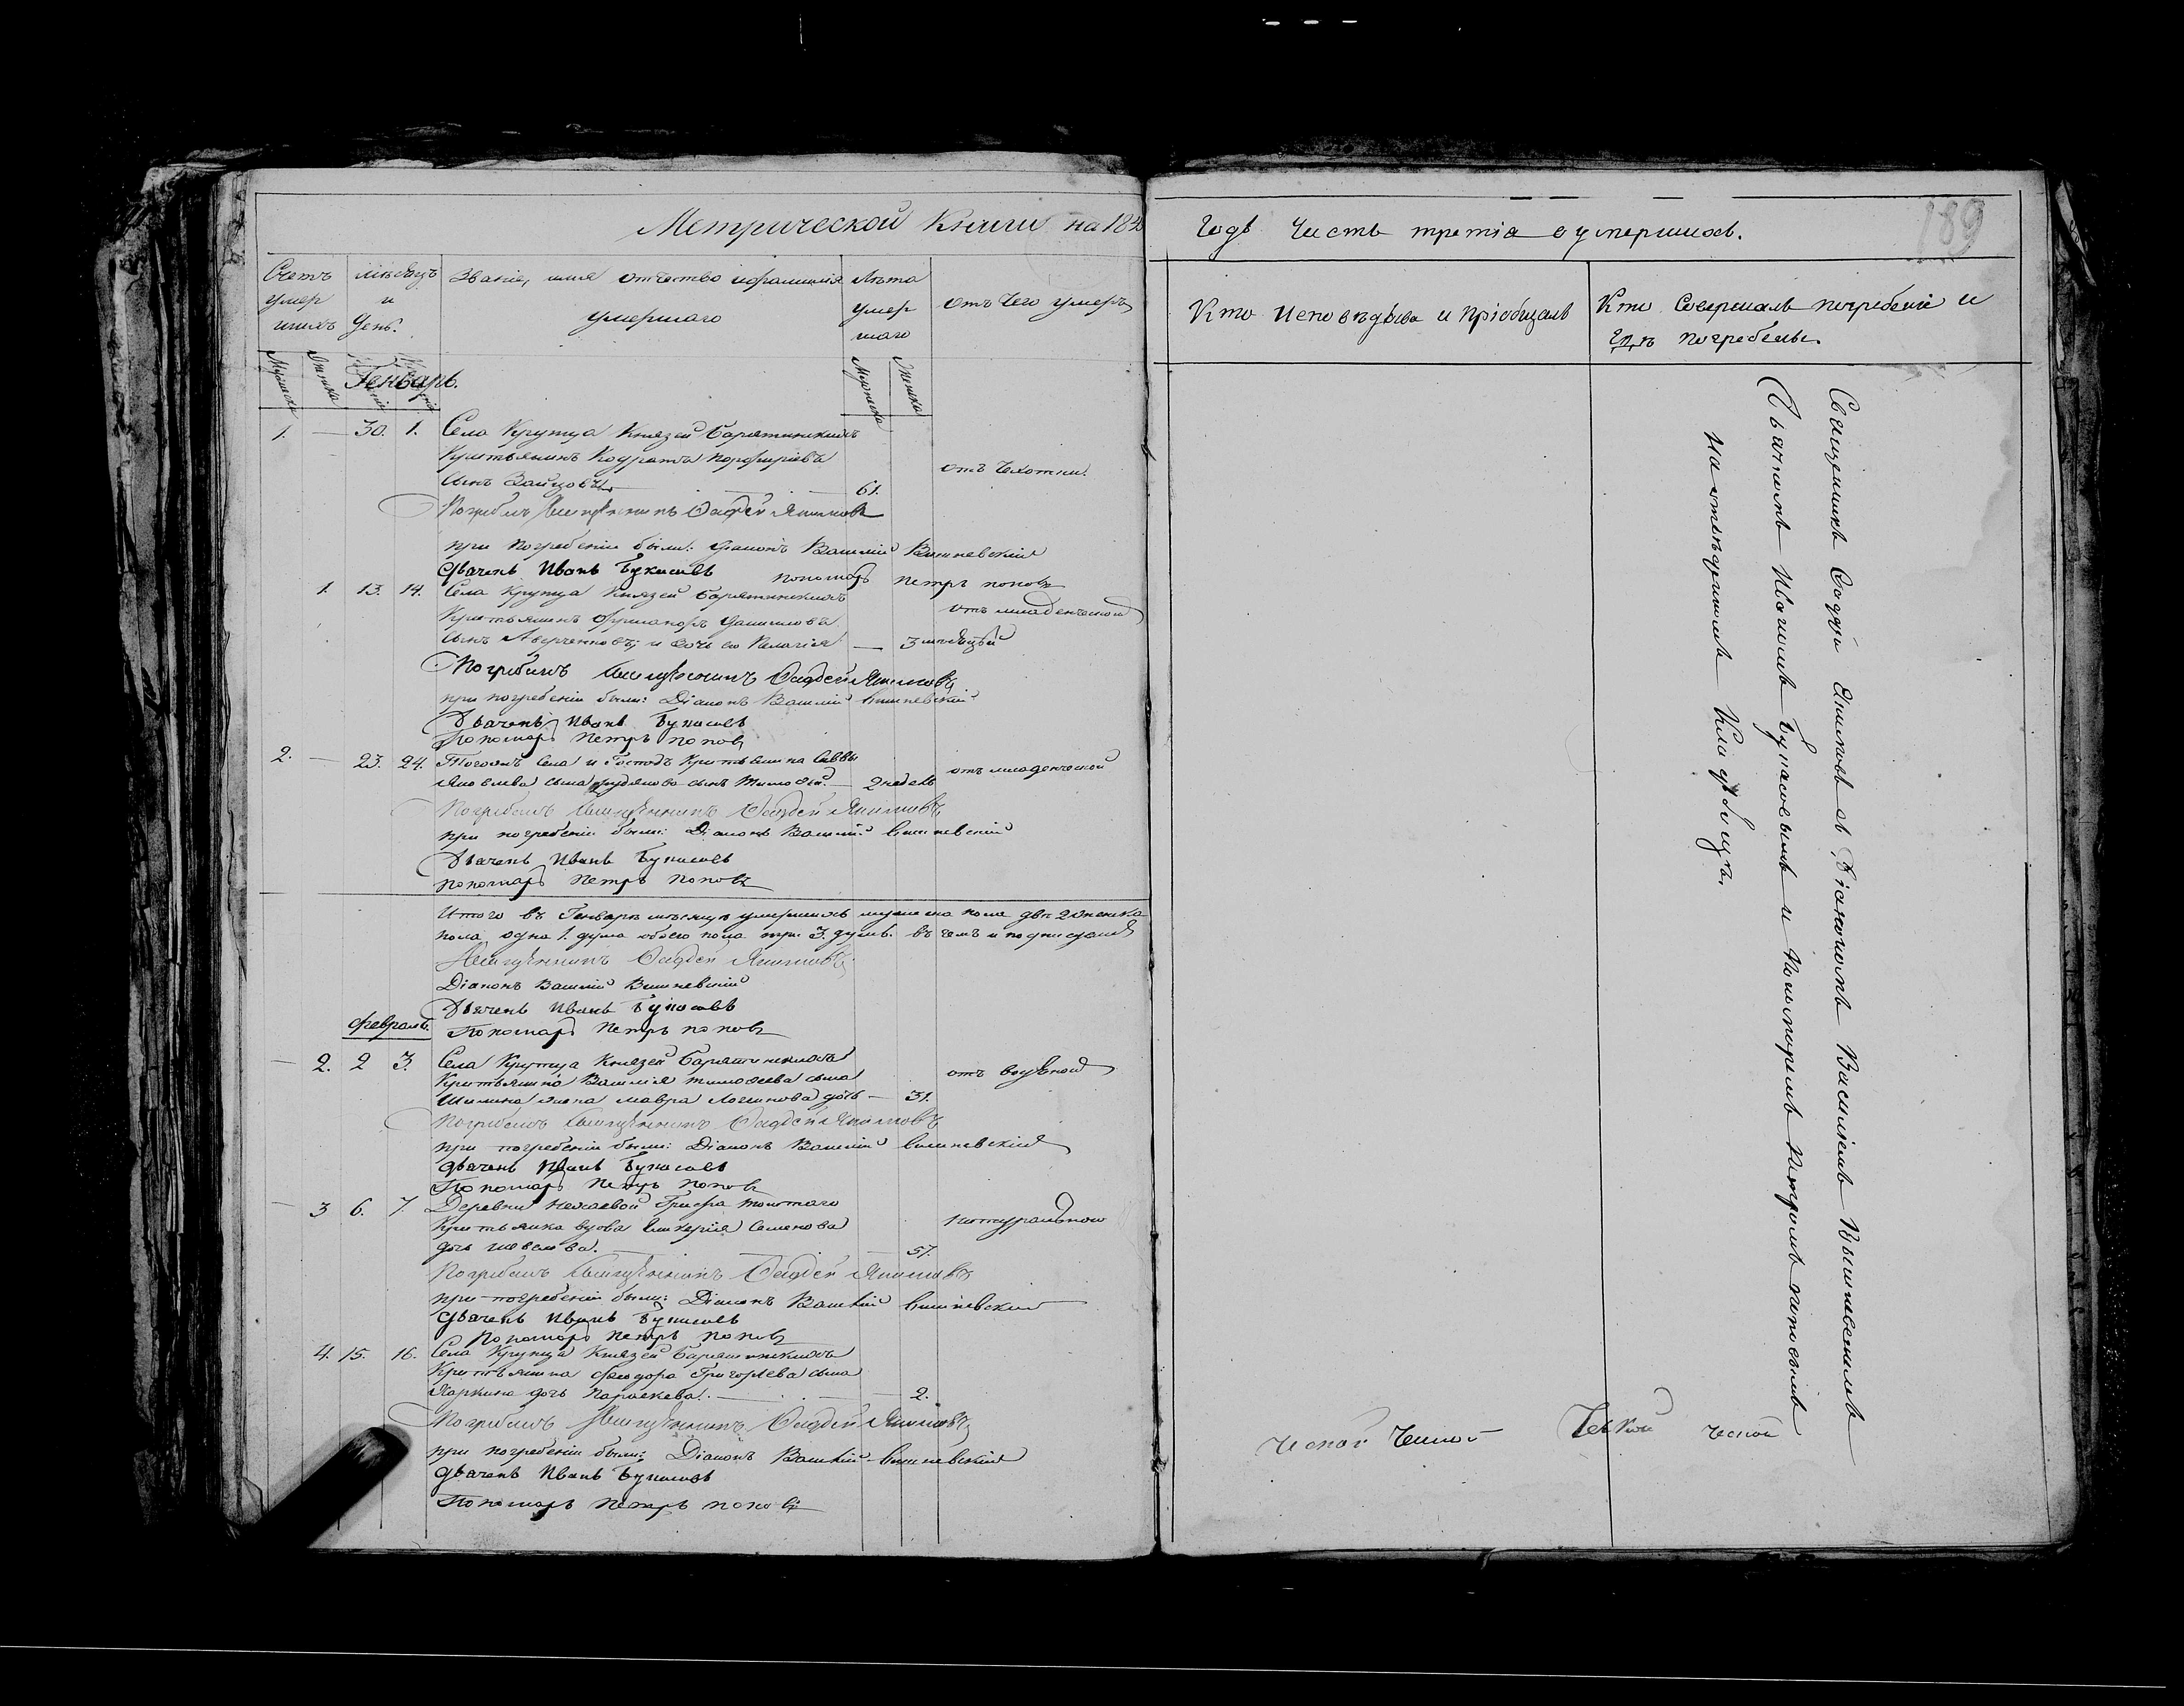 Метрической Книги на 184
Счетъ умер шихъ
мѣсяцъ и день.
Званіе, имя отчество и фамилія умершаго
Лѣта умер шаго
отъ чего умеръ
Мужеска
Женска
Генварь.
Мужеска
Женска
1. — 30. 1. Села Крутца Князей Барятинскихъ
Крестьянинъ Кодратъ Порфиріевъ
сынъ Зайцовъ — 61. отъ чахотки
Погребалъ Священникъ Фаддей Якимовъ
при погребеніи были: Діаконъ Василій Вишневскій
Дьячекъ Иванъ Букасовъ пономарь Петръ Поповъ
1. 13. 14. Села Крутца Князей Барятинскихъ отъ младенческой
Крестьянинъ Данилова
сынъ Аверченковъ, и дочь ево Пелагія — 3 мѣсяцей
Погребалъ Священникъ Фаддей Якимовъ
при погребеніи были: Діаконъ Василій Вишневскій
Дьячекъ Иванъ Букасовъ
Пономарь Петръ Поповъ
2. — 23. 24. Тогожъ Села и Господъ Крестьянина Саввы
Яковлева сына сынъ Тимофей — 2 недель отъ младенческой
Погребалъ Священникъ Фаддей Якимовъ
при погребеніи были: Діаконъ Василій Вишневскій
Дьячекъ Иванъ Букасовъ
пономарь Петръ Поповъ
Итого въ Генварѣ мѣсяцѣ умершихъ мужеска пола двѣ 2 женска
пола одна 1. душа обоего пола три 3. душъ. въ чемъ и подписуемся
Священникъ Фаддей Якимовъ
Діаконъ Василій Вишневскій
Дьячекъ Иванъ Букасовъ
Пономарь Петръ Поповъ
Февраль.
— 2. 2 3. Села Крутца Князей Барятинскихъ
Крестьянина Василія Тимофеева сына отъ водяной
Шилина жена Мавра Логинова дочь — 31.
Погребалъ Священникъ Фаддей Якимовъ
при погребеніи были: Діаконъ Василій Вишневскій
Дьячекъ Иванъ Букасовъ
Пономарь Петръ Поповъ
— 3 6. 7. Деревни Нехаевой Графа Толстаго
Крестьянка вдова Гликерія Семенова натуральною
дочь — 57.
Погребалъ Священникъ Фаддей Якимовъ
при погребеніи были: Діаконъ Василій Вишневскій
Дьячекъ Иванъ Букасовъ
Пономарь Петръ Поповъ
4. 15. 16. Села Крутца Князей Барятинскихъ
Крестьянина Феодора Григорьева сына
Паркина дочь Параскева. — 2.
Погребалъ Священникъ Фаддей Якимовъ
при погребеніи были: Діаконъ Василій Вишневскій
Дьячекъ Иванъ Букасовъ
Пономарь Петръ Поповъ
189
Годъ Часть третія о умершихъ.
Кто исповѣдывалъ и пріобщалъ
Кто Совершалъ погребеніе и
гдѣ погребены.
Священникъ Фаддей Якимовъ съ Діакономъ Василіемъ Вишневскимъ
Дьячкомъ Иваномъ Букасовымъ и Пономаремъ Петромъ Поповымъ
на отведенномъ Кладбищѣ.